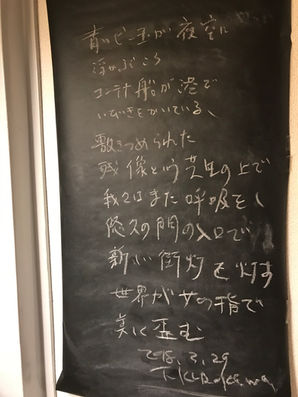 青いビー玉が夜空に
浮かぶころ
コンテナ船が港で
いびきをかいている
敷きつめられた
残像という芝生の上で
我々はまた呼吸をし
悠久の門の入口で
新しい街灯を灯す
世界が女の指で
美しく歪む
2018.3.29
T.Kurokawa